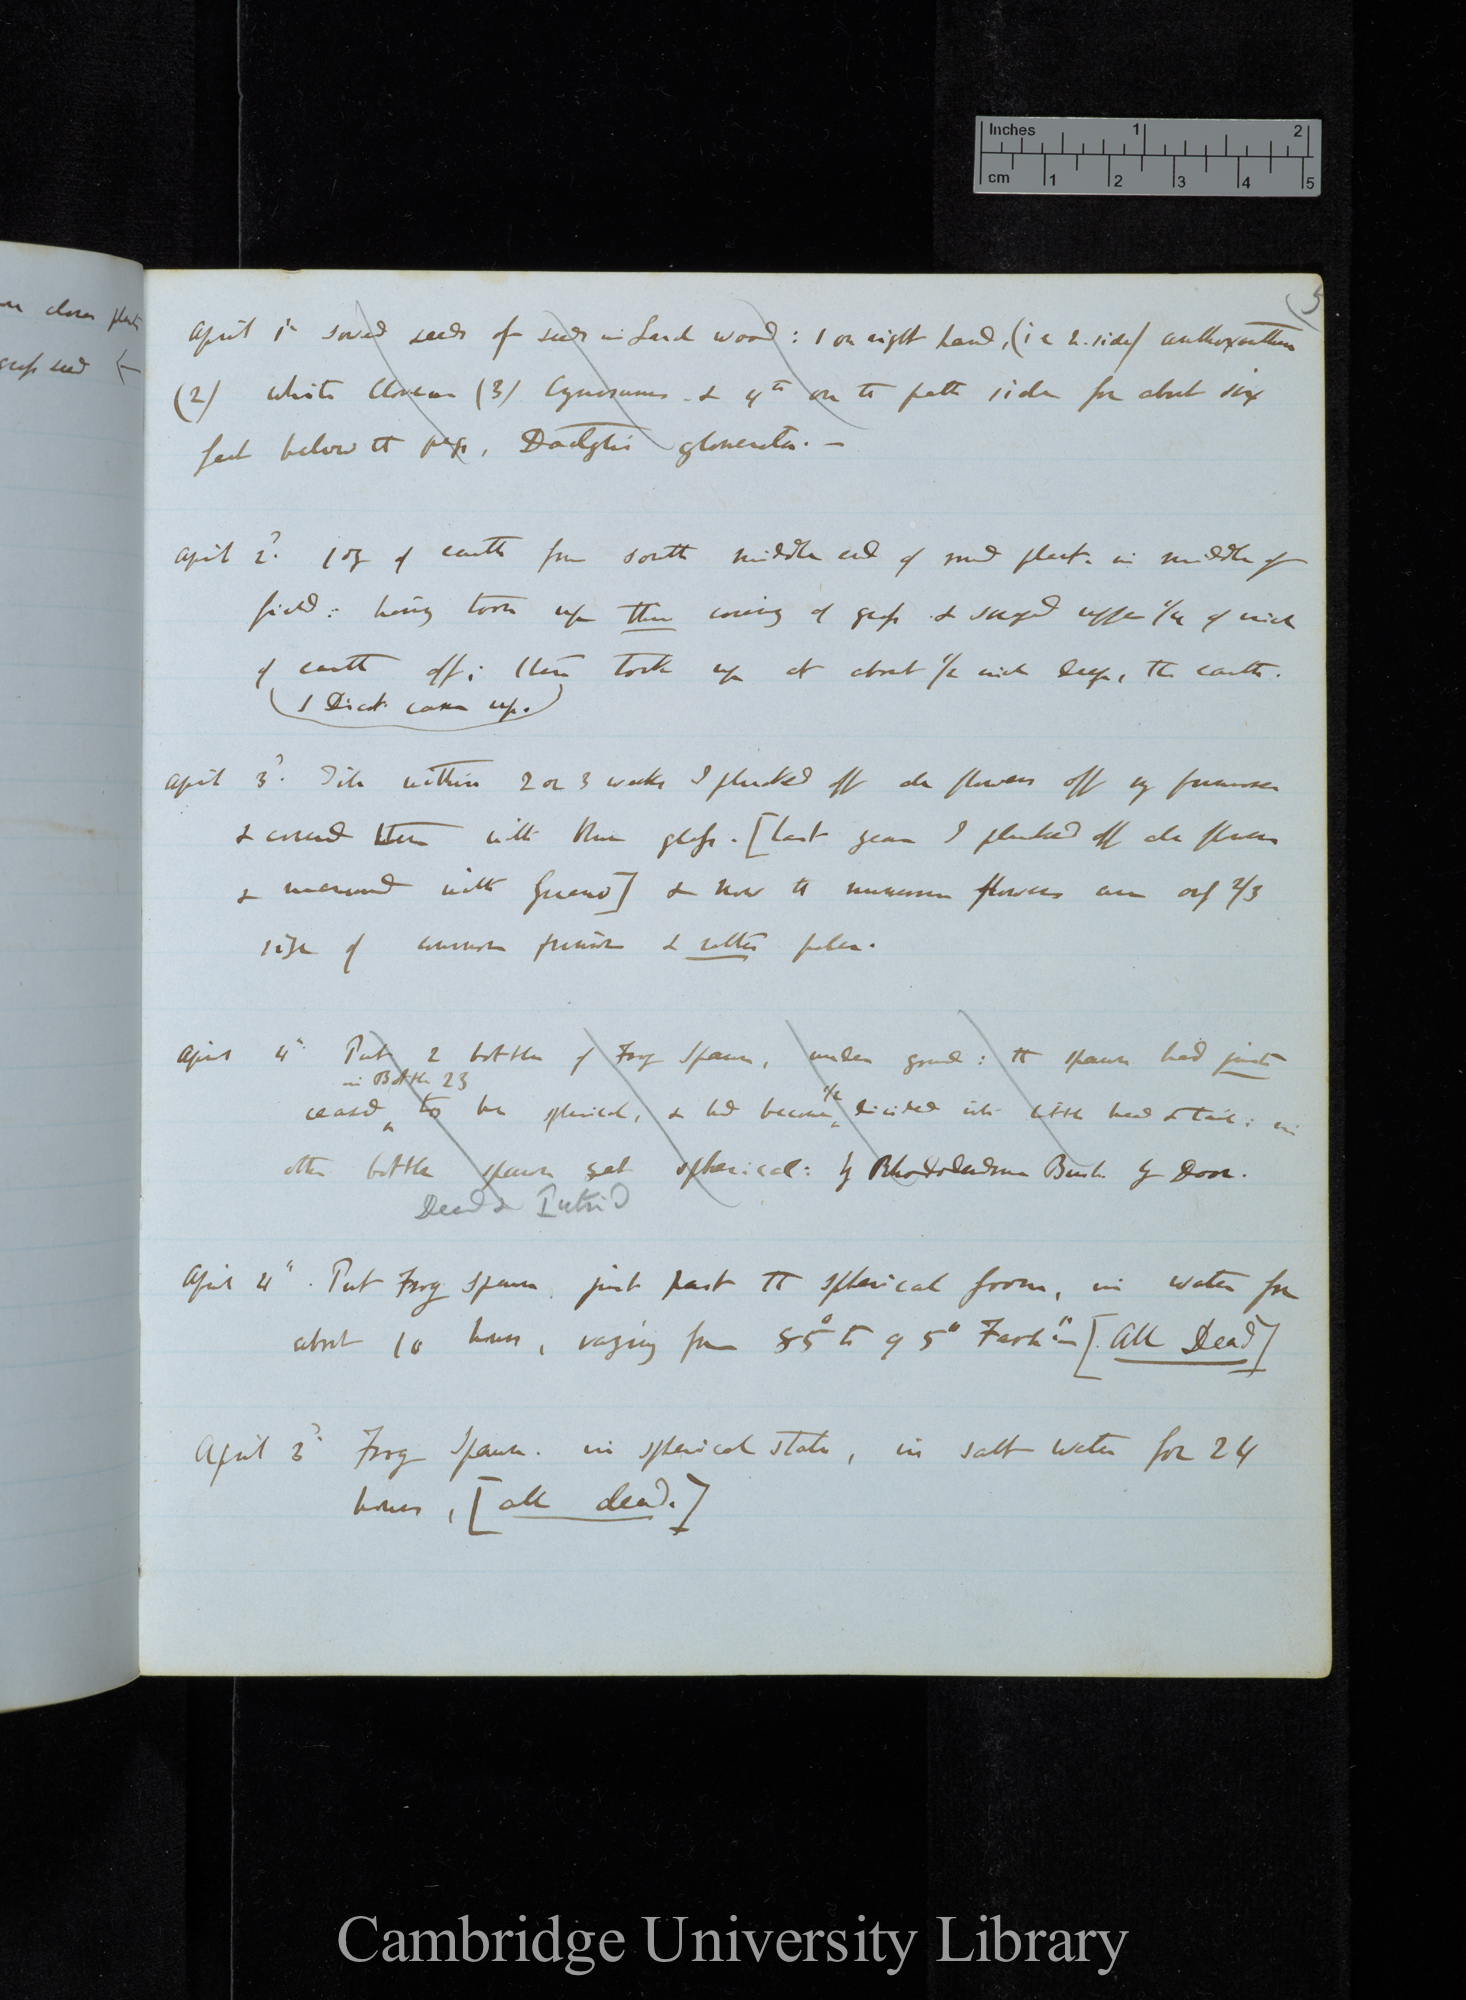 Inches 1 2
cm 1 2 3 4 5
5
clover plants
grass seed
April 1st sowed seeds of seeds in Sand wood: 1 on right hand, (i.e. h. side) anthoxanthum
(2) White Clover (3) Cynosurus & 4th on the path side for about six
feet below the pegs, Dactylis glomerata. —
April 2d. 1 oz of earth from south middle end of mud in middle of
field: having torn up thin covering of grass & scraped upper 1/4 of inch
of earth off; then took up at about 1/2 inch deep, the earth.
(1 Dicot. came up.)
April 3d. within 2 or 3 weeks I plucked off all flowers off my primroses
& covered them with blue glass. [Last year I plucked off all flowers
& manured with Guano] & now the numerous flowers are only 2/3
size of common primrose & rather paler.
April 4th Put 2 bottles of Frog Spawn, under ground: the spawn had just
in Bottle 23
ceased to be spherical, & had become 1/2 divided into little head & tail: in
other bottle spawn yet spherical: by Rhododendron Bush by Door.
Dead & Putrid
April 4th. Put Frog spawn, just past the spherical form, in water for
about 10 hours, varying from 85° to 95° Farh [All Dead]
April 3d Frog Spawn. in spherical state, in salt water for 24
hours, [all dead.]
Cambridge University Library